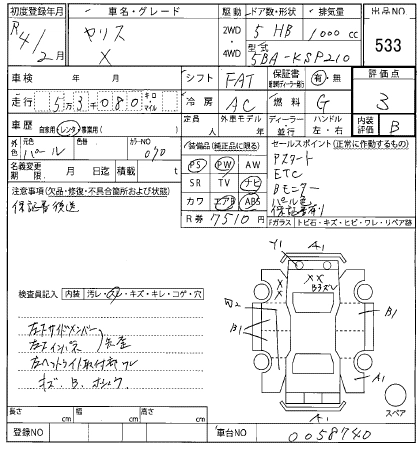 初度登録年月 車名・グレード 駆動 ドア数・形状 排気量 出品NO
R4/2月 ヤリス 2WD・4WD 5 HB 1000 cc 533
X 型式 5BA-KSP210
車検 年 月 シフト FAT 保証書 有・無 評価点
走行 53,080 キロ・マイル 冷房 AC 燃料 G 3
車歴 自家用・レンタ・事業用( ) 定員 人 外車モデル 年 ディーラー 並行 ハンドル 左・右 内装評価 B
外色 元色 パール 現色 カラーNO 070 装備品(純正品に限る) セールスポイント(正常に作動するもの)
名義変更期限 月 日迄 積載 t PS PW AW Pスタート
SR TV ナビ ETC
注意事項(欠品・修復・不具合箇所および状態) カワ エアB ABS Bモニター
保証書後送 R券 7510円 パール色
保証書有り
Fガラス トビ石・キズ・ヒビ・ワレ・リペア跡
検査員記入 内装 汚レ・スレ・キズ・キレ・コゲ・穴
左Fサイドメンバー
左Fインパネ
左ヘッドライト取付部ワレ
キズ、B、
Y1 A1
XX
B1 B1
A1
A1
スペア
長さ cm 幅 cm 高さ cm
登録NO 車台NO 0058740